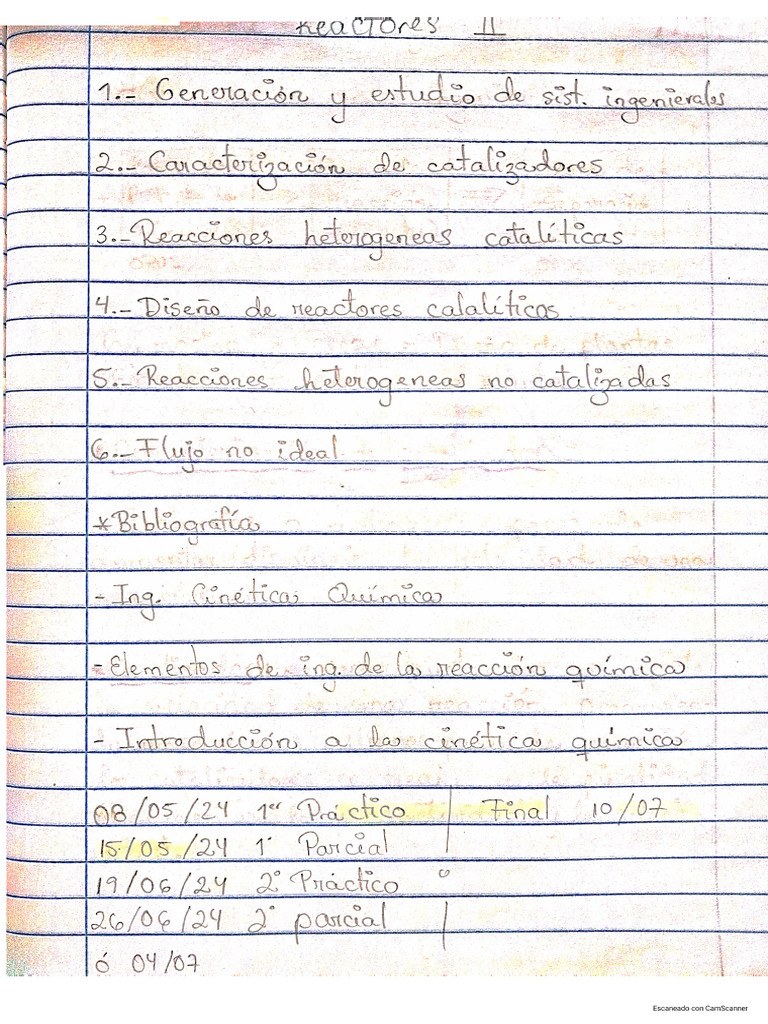 Reactores II
1.- Generación y estudio de sist. ingenierales
2.- Caracterización de catalizadores
3.- Reacciones heterogeneas catalíticas
4.- Diseño de reactores calalíticos
5.- Reacciones heterogeneas no catalizadas
6.- Flujo no ideal
*Bibliografía
- Ing. Cinéticas Química
- Elementos de ing. de la reacción química
- Introducción a la cinética química
08/05/24 1er Práctico | Final 10/07
15/05/24 1° Parcial
19/06/24 2° Práctico
26/06/24 2° parcial
ó 04/07
Escaneado con CamScanner